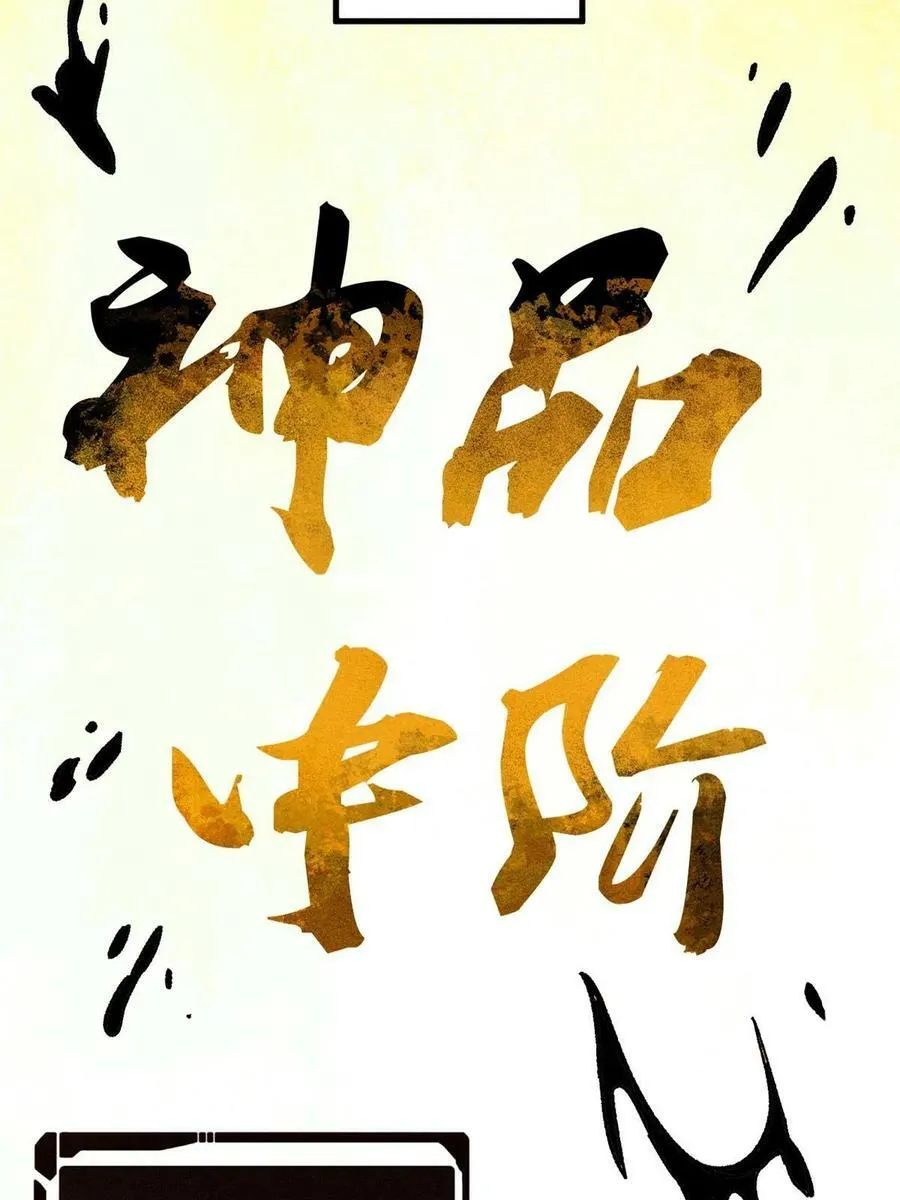 神品
中阶